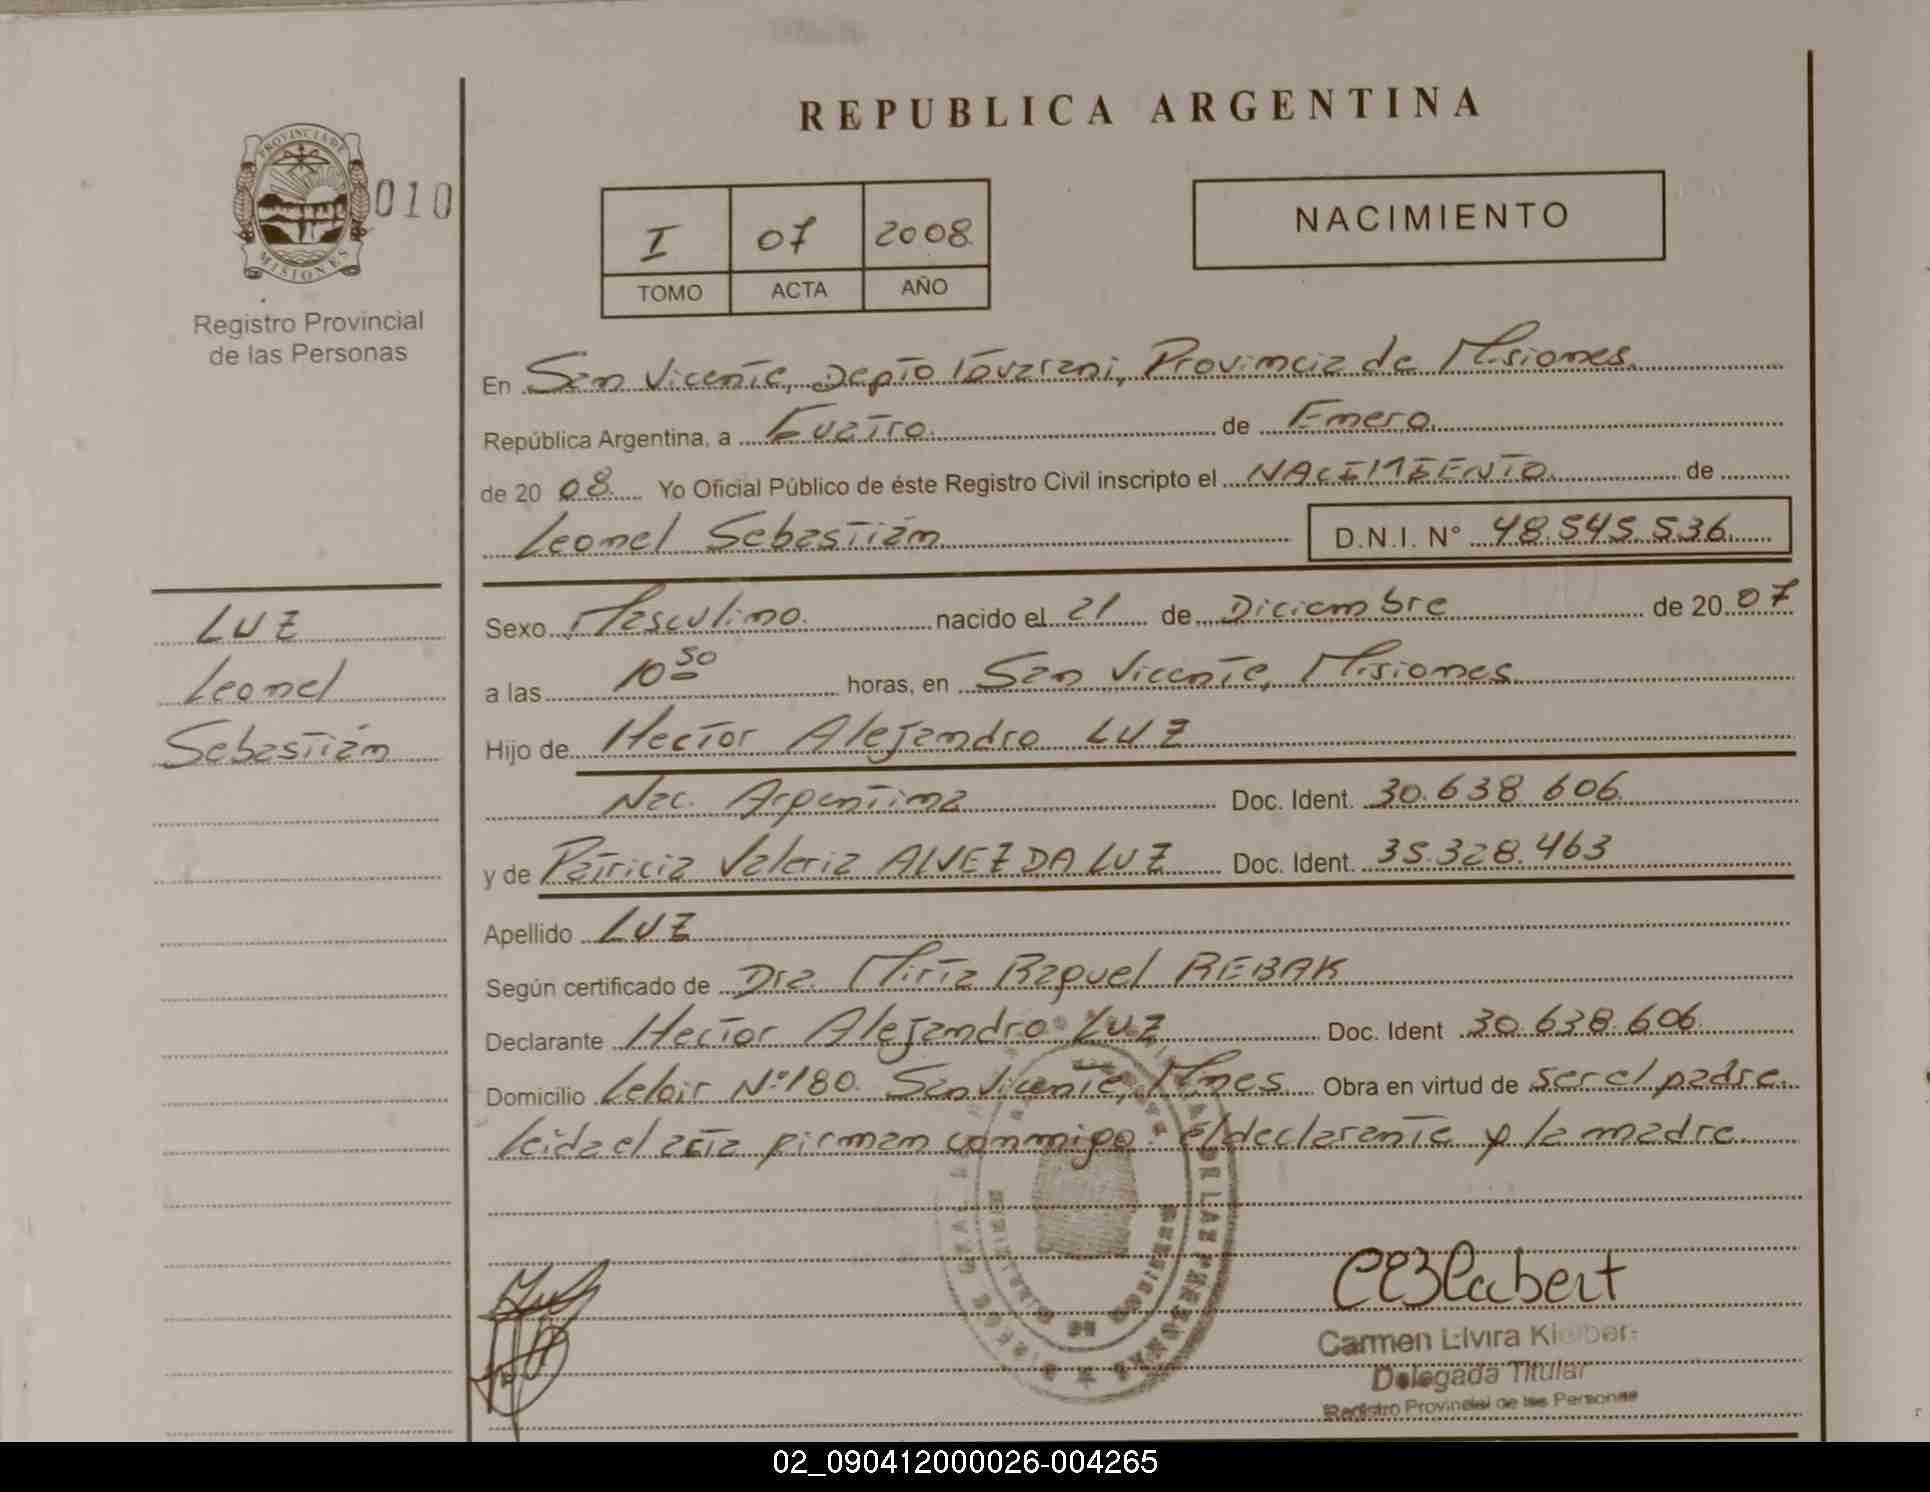 REPUBLICA ARGENTINA
PROVINCIA DE
MISIONES
010
Registro Provincial
de las Personas
I 07 2008
TOMO ACTA AÑO
NACIMIENTO
En San Vicente, Depto Guarani, Provincia de Misiones
República Argentina, a Cuatro de Enero
de 20 08 Yo Oficial Público de éste Registro Civil inscripto el NACIMIENTO de
Leonel Sebastián D.N.I. N° 48.545.536
LUZ
Leonel
Sebastián
Sexo Masculino nacido el 21 de Diciembre de 20 07
a las 10 50 horas, en San Vicente, Misiones
Hijo de Hector Alejandro LUZ
Nac. Argentina Doc. Ident. 30.638.606
y de Patricia Valeria ALVEZ DA LUZ Doc. Ident. 35.328.463
Apellido LUZ
Según certificado de Dra. Mirta Raquel REBAK
Declarante Hector Alejandro LUZ Doc. Ident 30.638.606
Domicilio Leloir N°180. San Vicente, Mnes Obra en virtud de ser el padre.
Leida el acta firman conmigo: el declarante y la madre.
DE LAS PERSONAS
Carmen Elvira
Delegada Titular
Registro Provincial de las Personas
02_090412000026-004265